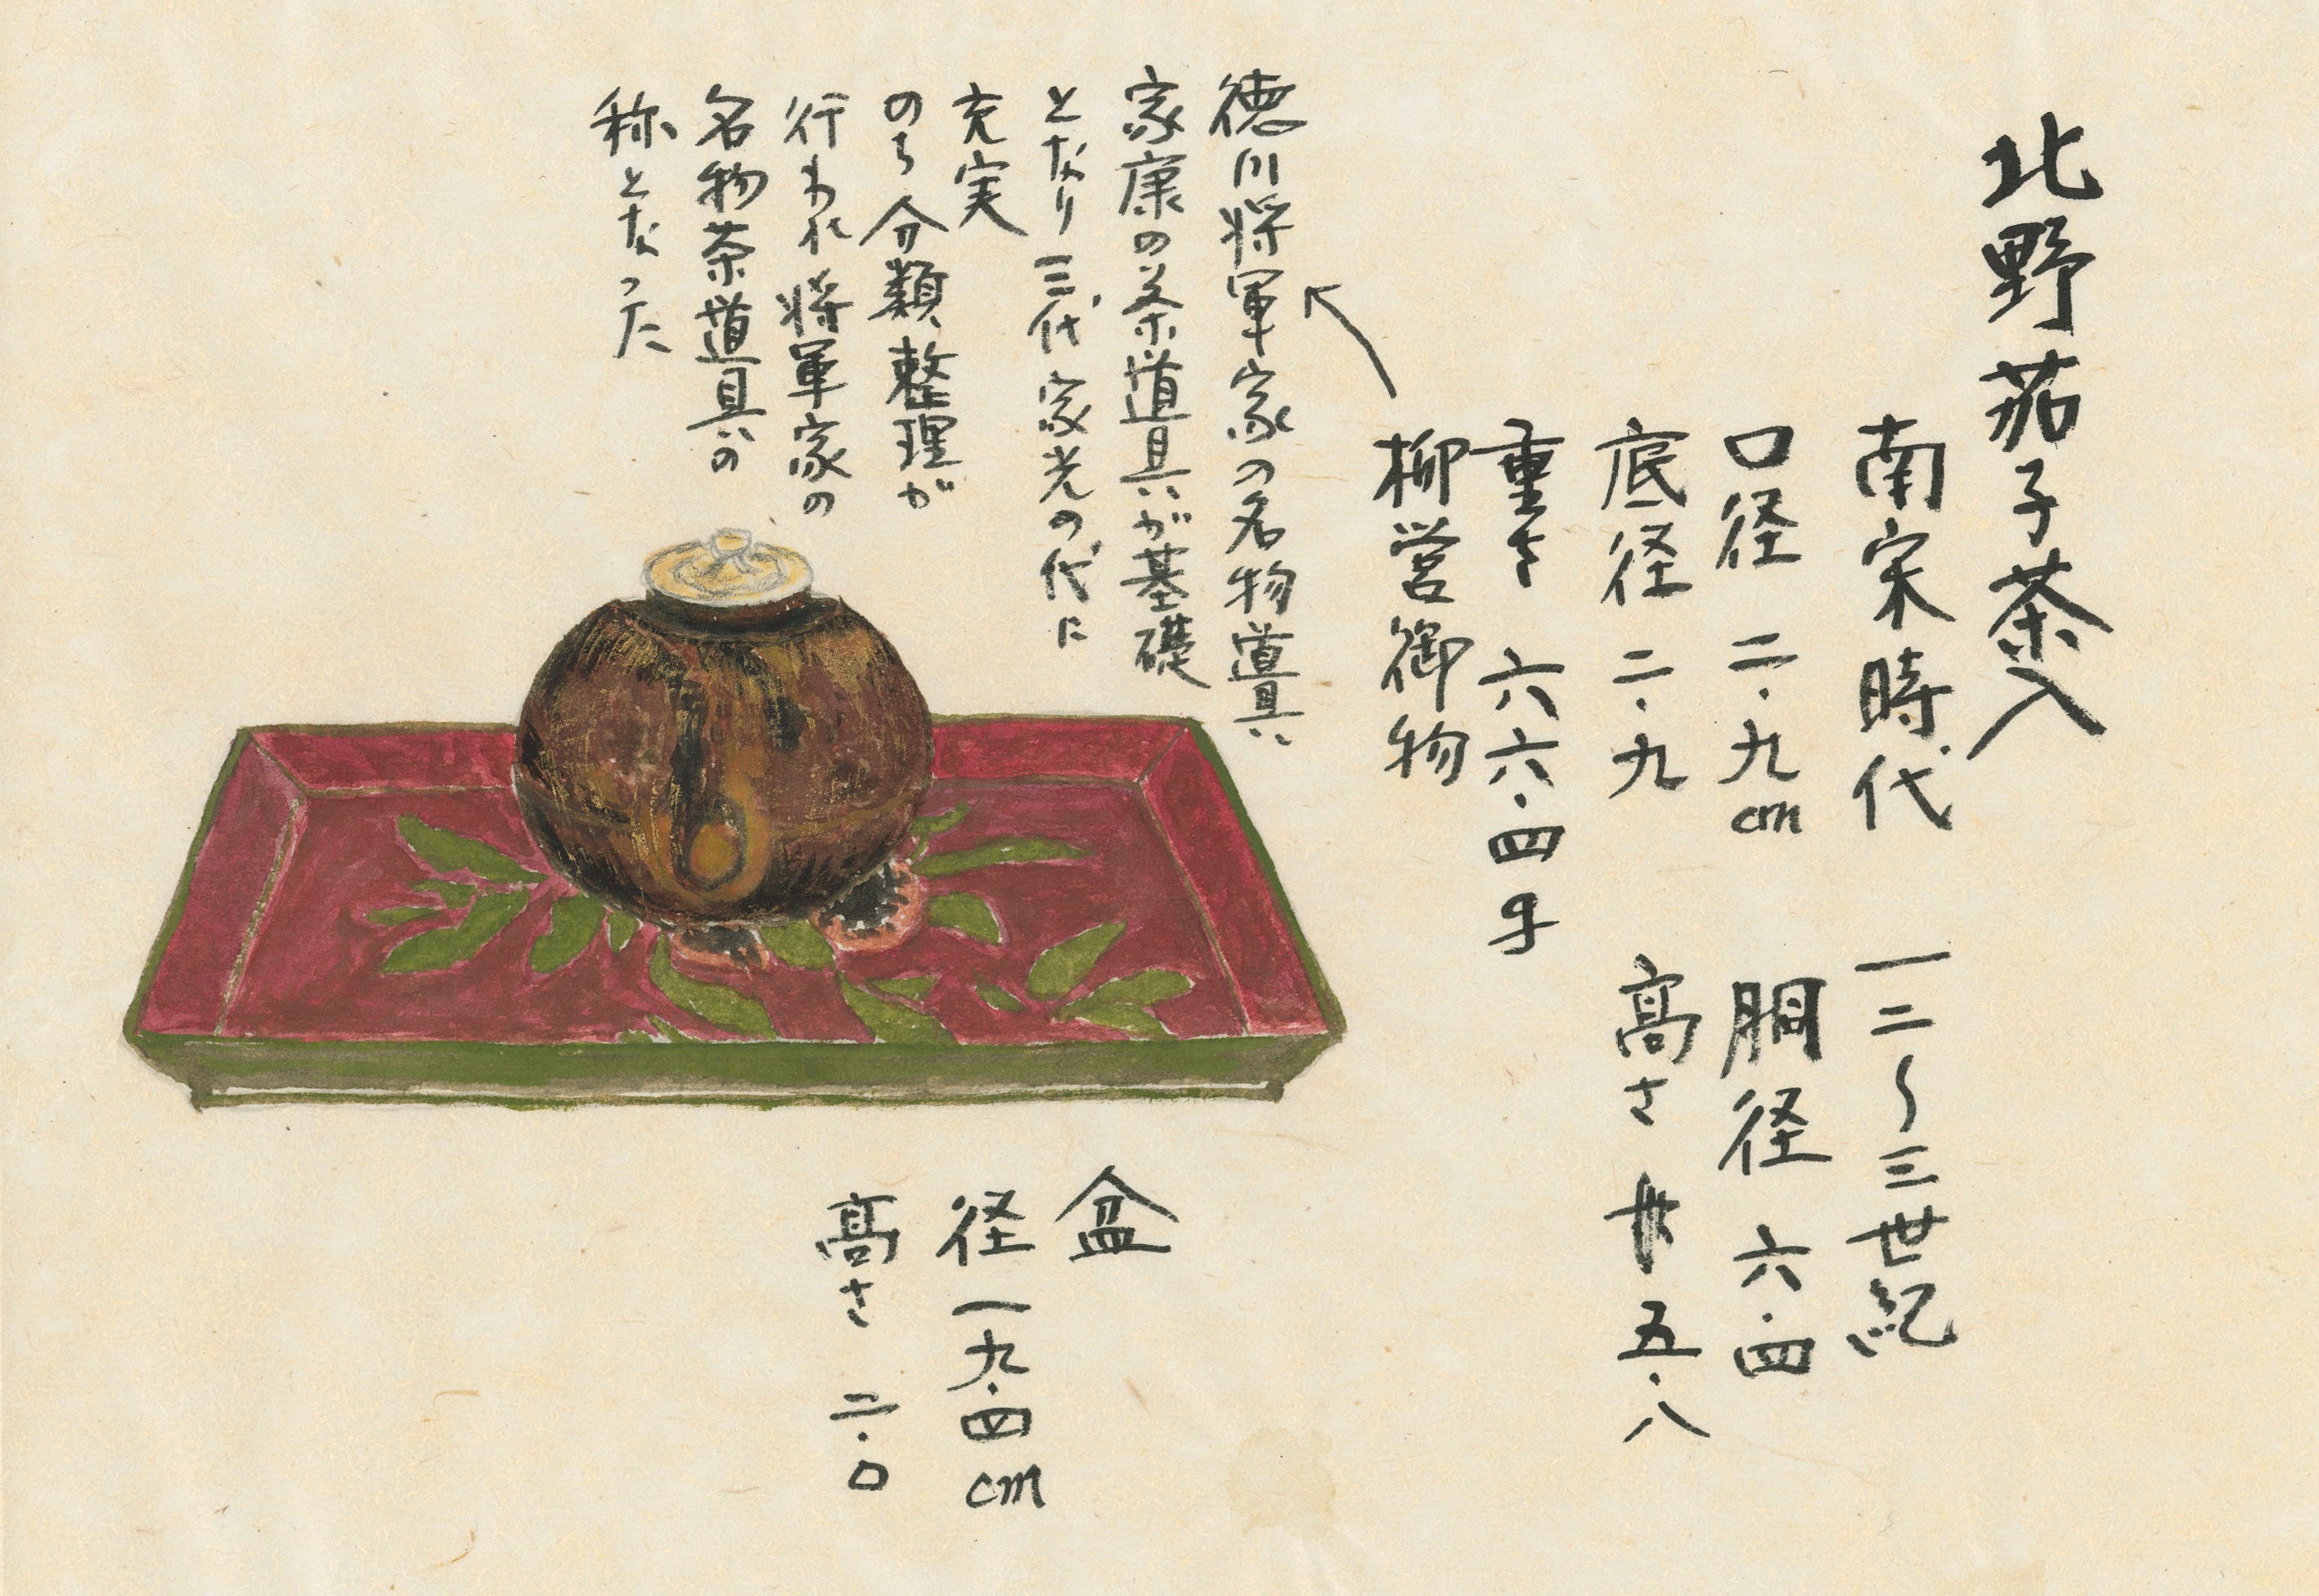 北野茄子茶入
南宋時代 一二〜三世紀
口径 二・九cm 胴径 六・四
底径 二・九 高さ 五・八
重さ 六六・四g
柳営御物
徳川将軍家の名物道具
家康の茶道具が基礎
となり三代家光の代に
充実
のち分類整理が
行われ将軍家の
名物茶道具の
称となった
盆
径一九・四cm
高さ 二・〇